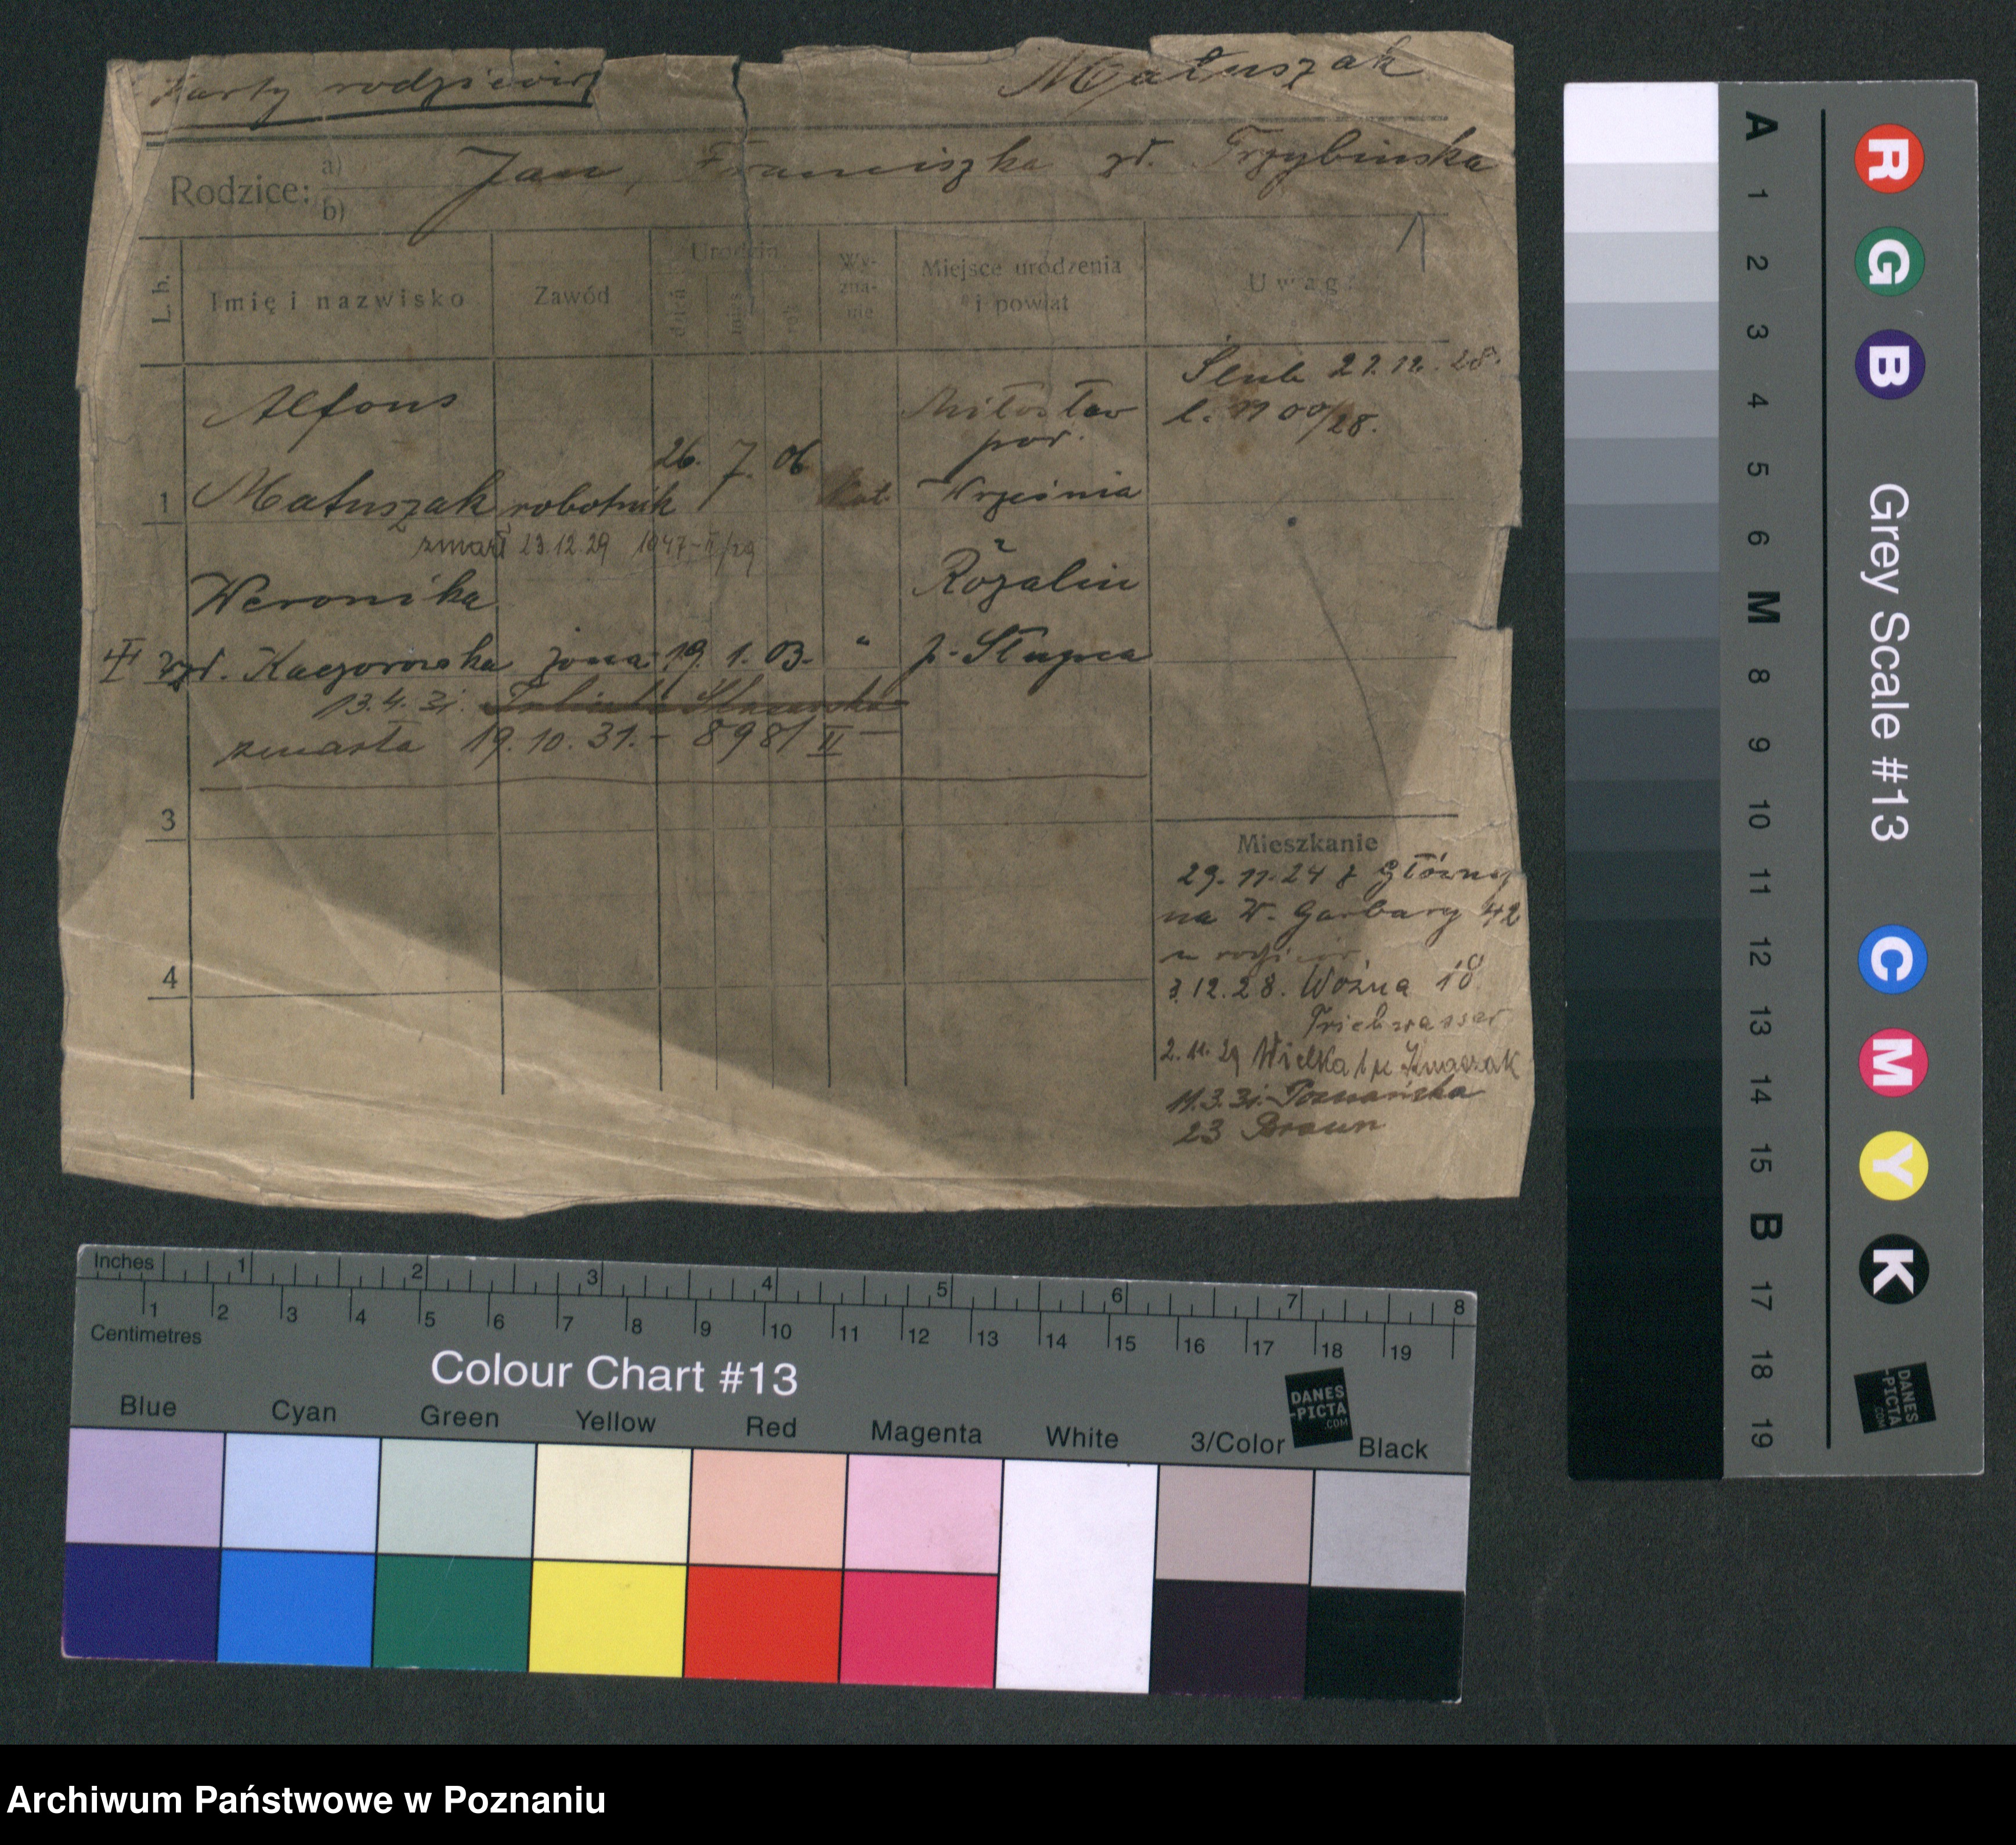 Karty rodziców
Matuszak
Rodzice: a) b) Jan, Franciszka zd. Grzybinska
L. b. Imię i nazwisko Zawód Urodzin dzień mies. rok Wyznanie Miejsce urodzenia i powiat Uwagi
Ślub 27.12.28.
l. 1100/28.
Alfons
Miłosław
pow.
1 Matuszak robotnik 26. 7. 06 kat. Września
zmarł 23.12.29 1047-II/29
Weronika Różalin
zd. Kaczorowska żona 19. 1. 03. " p. Słupca
13.4.31.
zmarła 19.10.31. - 898/II
3
4
Mieszkanie
29.11.24 z Głównej
na W. Garbary 42
u rodziców
3.12.28. Woźna 18
2.11.29 Wielka
11.3.31. Poznańska
23 Braun
Inches 1 2 3 4 5 6 7 8
1 2 3 4 5 6 7 8 9 10 11 12 13 14 15 16 17 18 19
Centimetres
Colour Chart #13
DANES-PICTA.COM
Blue Cyan Green Yellow Red Magenta White 3/Color Black
A 1 2 3 4 5 6 M 8 9 10 11 12 13 14 15 B 17 18 19
R G B Grey Scale #13 C M Y K
DANES-PICTA.COM
Archiwum Państwowe w Poznaniu